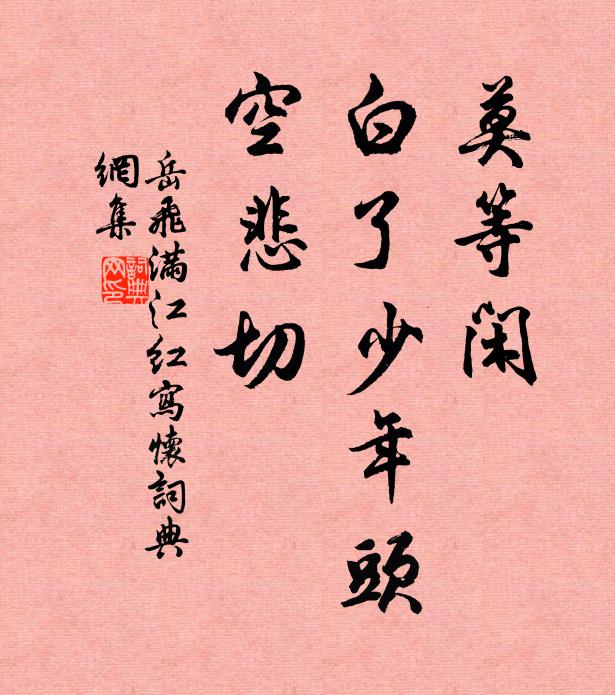 莫等閑
白了少年頭
空悲切
岳飛滿江紅寫懷詞典
網集
詞典網印